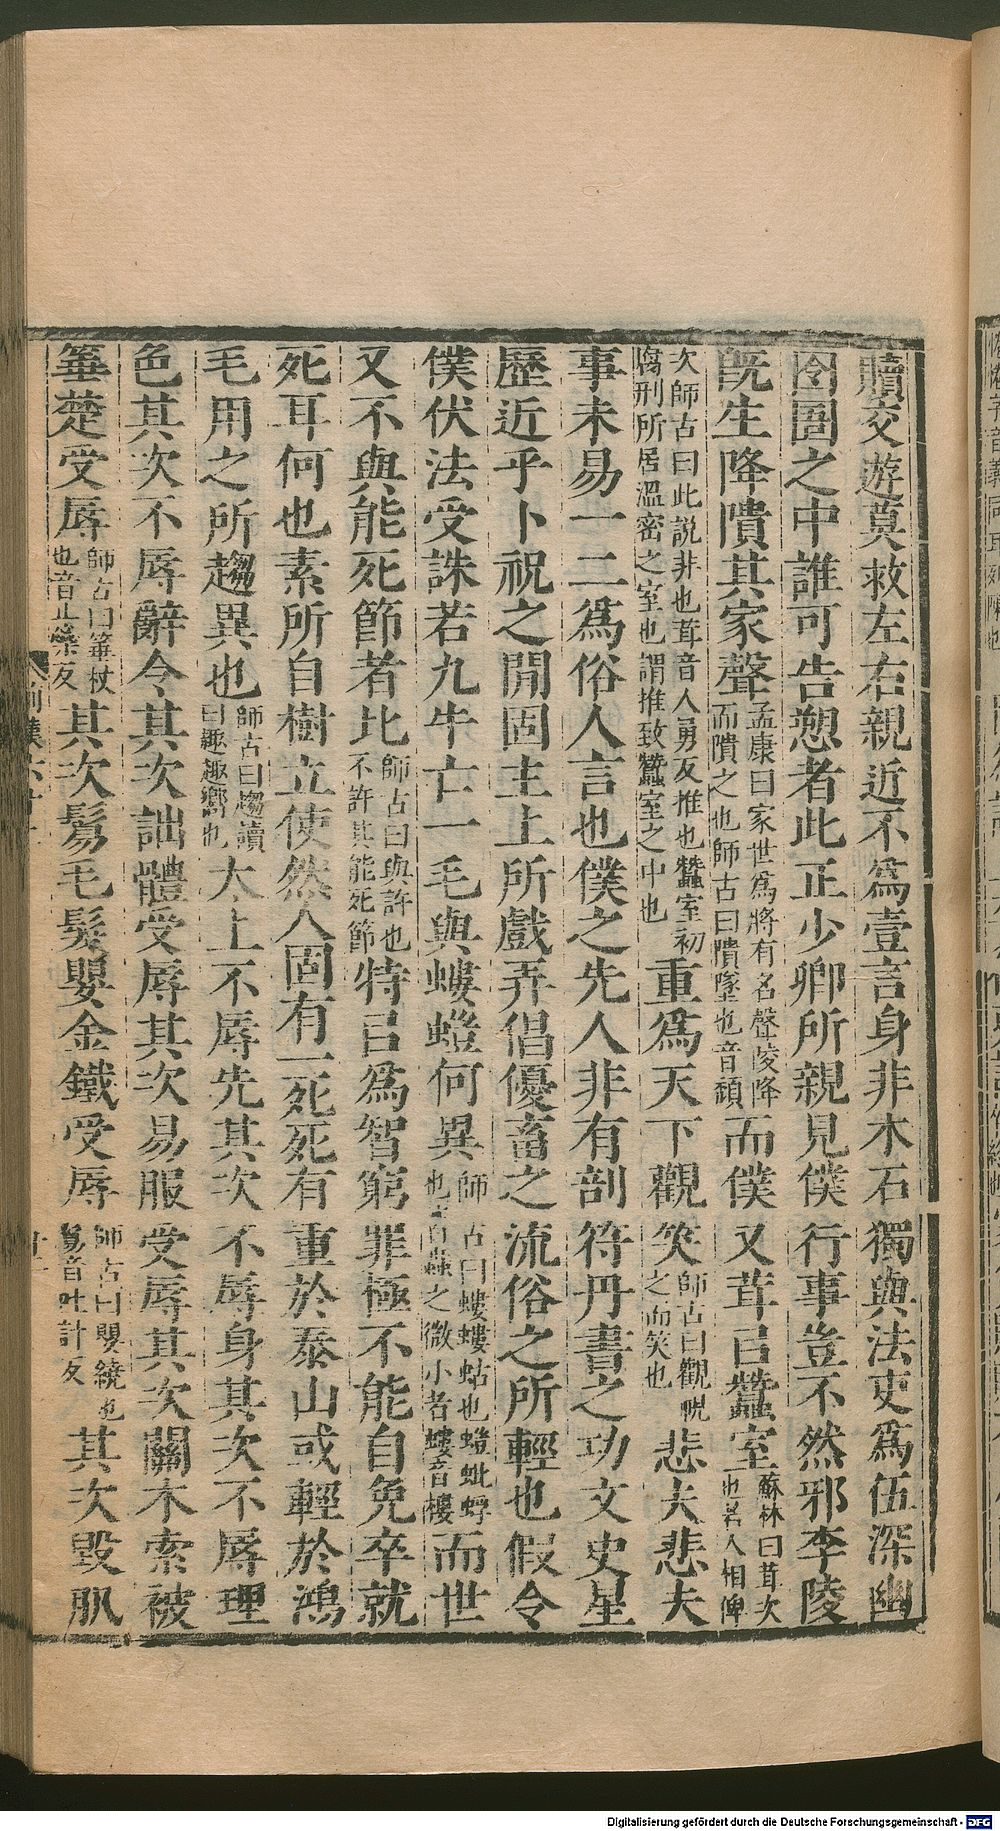 贖交遊莫救左右親近不爲壹言身非木石獨與法吏爲伍深幽
囹圄之中誰可告愬者此正少卿所親見僕行事豈不然邪李陵
既生降隤其家聲孟康曰家世爲將有名聲陵降而隤之也師古曰隤墜也音頽而僕又茸㠯蠶室蘇林曰茸次也若人相俾
次師古曰此説非也茸音人勇反推也蠶室初腐刑所居溫密之室也謂推致蠶室之中也重爲天下觀笑師古曰觀視之而笑也悲夫悲夫
事未易一二爲俗人言也僕之先人非有剖符丹書之功文史星
歷近乎卜祝之閒固主上所戲弄倡優畜之流俗之所輕也假令
僕伏法受誅若九牛亡一毛與螻螘何異師古曰螻螻蛄也螘蚍蜉也皆蟲之微小者螻音樓而世
又不與能死節者比師古曰與許也不許其能死節特㠯爲智窮罪極不能自免卒就
死耳何也素所自樹立使然人固有一死死有重於泰山或輕於鴻
毛用之所趨異也師古曰趨讀曰趣趣嚮也太上不辱先其次不辱身其次不辱理
色其次不辱辭令其次詘體受辱其次易服受辱其次關木索被
箠楚受辱師古曰箠杖也音止橤反其次鬄毛髮嬰金鐵受辱師古曰嬰繞也鬄音吐計反其次毀肌
Digitalisierung gefördert durch die Deutsche Forschungsgemeinschaft - DFG